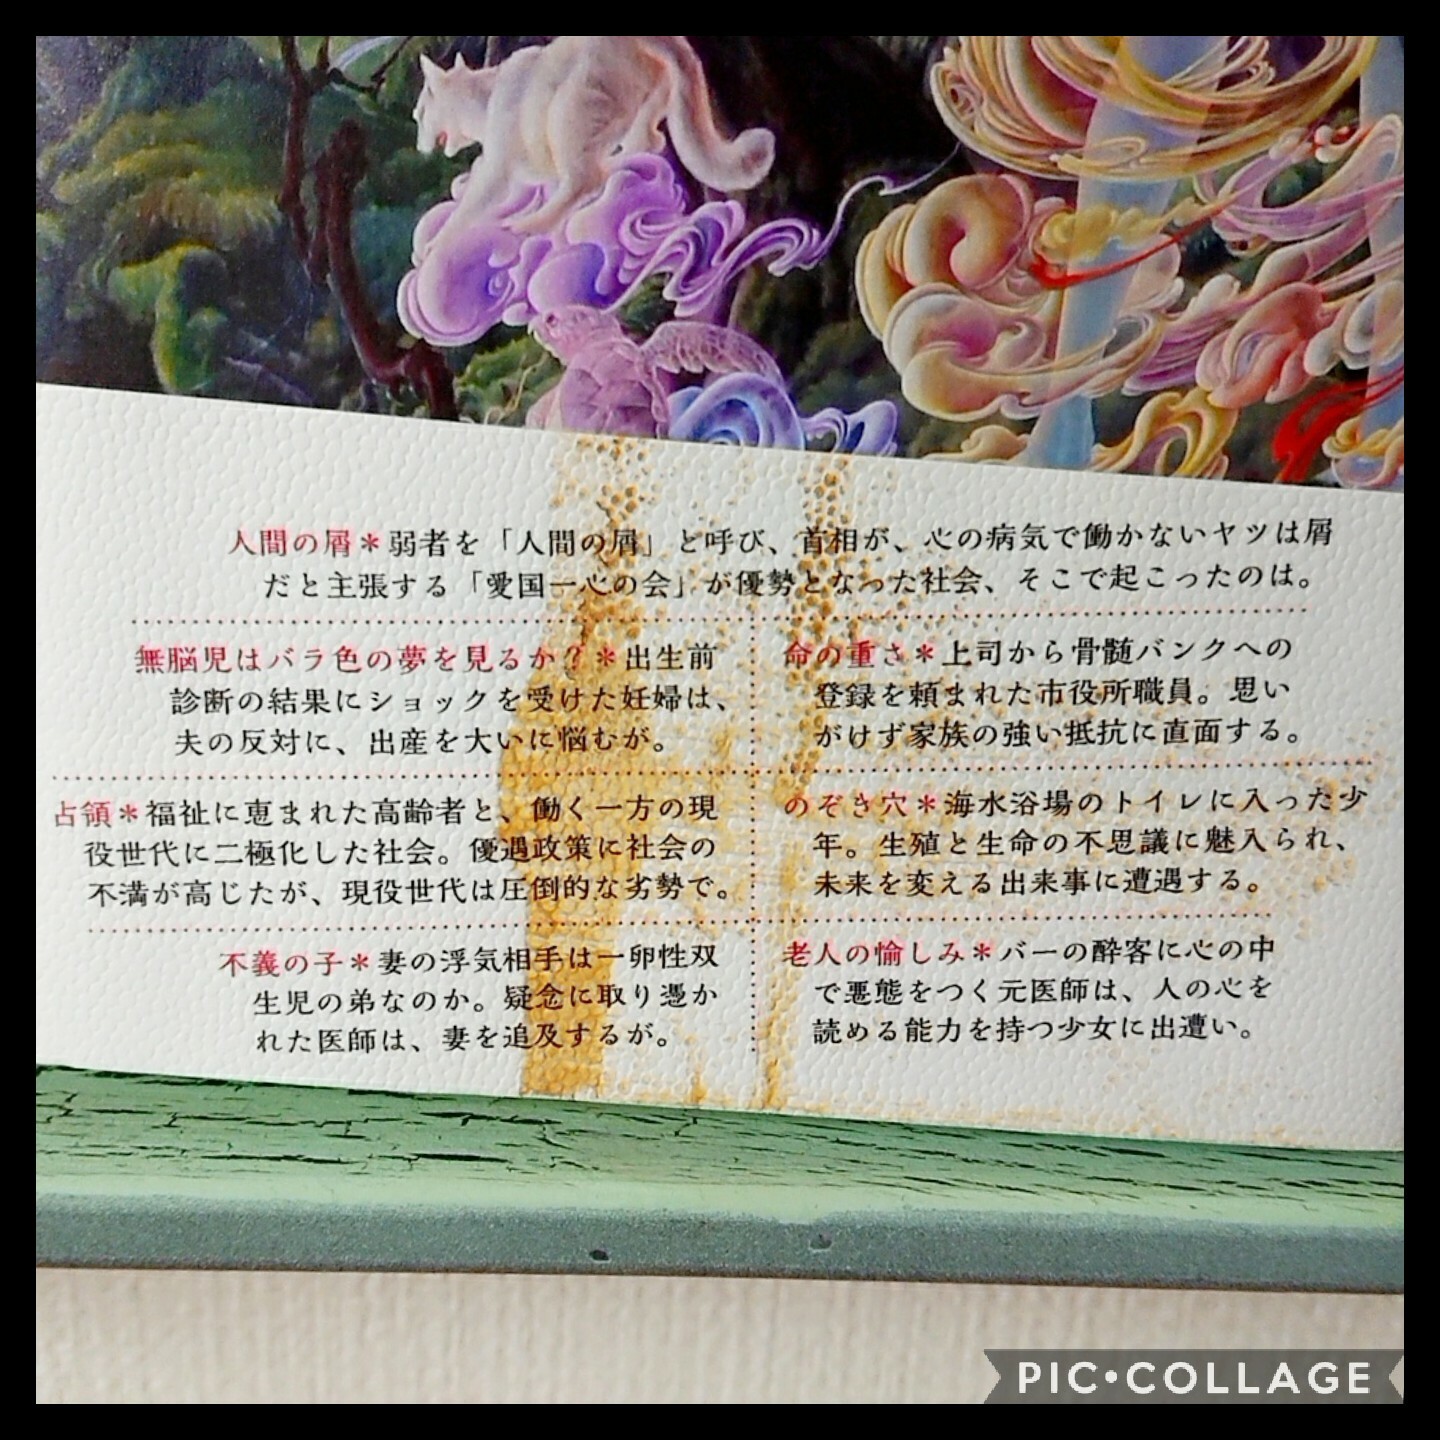 人間の屑＊弱者を「人間の屑」と呼び、首相が、心の病気で働かないヤツは屑
だと主張する「愛国一心の会」が優勢となった社会、そこで起こったのは。
無脳児はバラ色の夢を見るか？＊出生前
診断の結果にショックを受けた妊婦は、
夫の反対に、出産を大いに悩むが。
命の重さ＊上司から骨髄バンクへの
登録を頼まれた市役所職員。思い
がけず家族の強い抵抗に直面する。
占領＊福祉に恵まれた高齢者と、働く一方の現
役世代に二極化した社会。優遇政策に社会の
不満が高じたが、現役世代は圧倒的な劣勢で。
のぞき穴＊海水浴場のトイレに入った少
年。生殖と生命の不思議に魅入られ、
未来を変える出来事に遭遇する。
不義の子＊妻の浮気相手は一卵性双
生児の弟なのか。疑念に取り憑か
れた医師は、妻を追及するが。
老人の愉しみ＊バーの酔客に心の中
で悪態をつく元医師は、人の心を
読める能力を持つ少女に出遭い。
PIC•COLLAGE